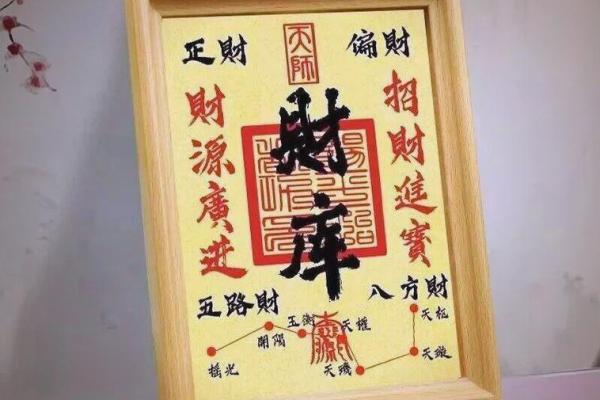 正財
天師
偏財
招財進寶
財庫
財源廣进
五路財
八方財
天枢
天璇
天璣
天權
玉衡
開陽
摇光